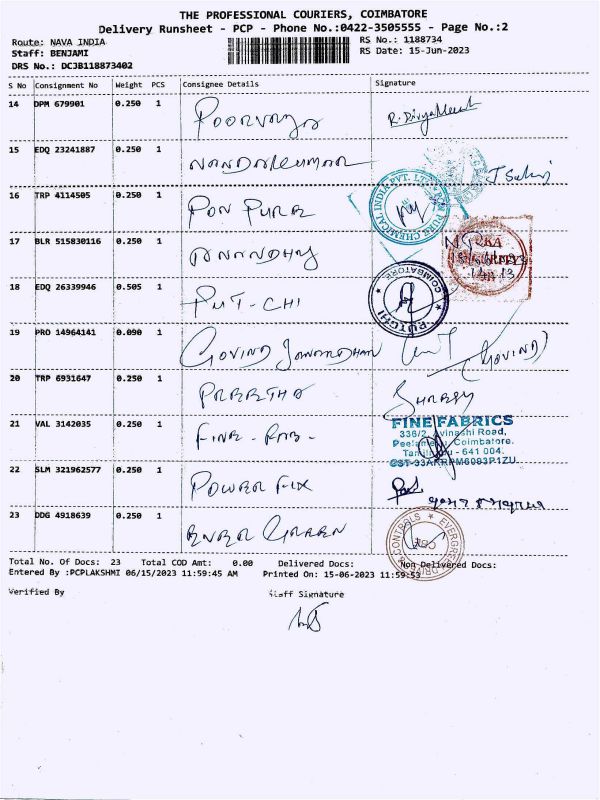 THE PROFESSIONAL COURIERS, COIMBATORE
Delivery Runsheet - PCP - Phone No.:0422-3505555 - Page No.:2
Route: NAVA INDIA RS No.: 1188734
Staff: BENJAMI RS Date: 15-Jun-2023
DRS No.: DCJB118873402
S No Consignment No Weight PCS Consignee Details Signature
14 DPM 679901 0.250 1 Poorvaja R. Divya
15 EDQ 23241887 0.250 1 NANDAKUMAR
16 TRP 4114505 0.250 1 PON PURE
PURE CHEMICAL INDIA PVT. LTD
17 BLR 515830116 0.250 1 ANANDHY
18 EDQ 26339946 0.505 1 PUT-CHI
PUTCHI COIMBATORE
19 PRO 14964141 0.090 1 GOVIND JANARDHAN (GOVIND)
20 TRP 6931647 0.250 1 PREETHA
21 VAL 3142035 0.250 1 FINE-FAB-
FINE FABRICS
336/2, Avinashi Road,
Peelamedu, Coimbatore.
Tamilnadu - 641 004.
22 SLM 321962577 0.250 1 POWER FIX
23 DDG 4918639 0.250 1 EVER GREEN
EVERGREEN DRIVES & CONTROLS
CBE
Total No. Of Docs: 23 Total COD Amt: 0.00 Delivered Docs: Non Delivered Docs:
Entered By :PCPLAKSHMI 06/15/2023 11:59:45 AM Printed On: 15-06-2023 11:59:53
Verified By Staff Signature